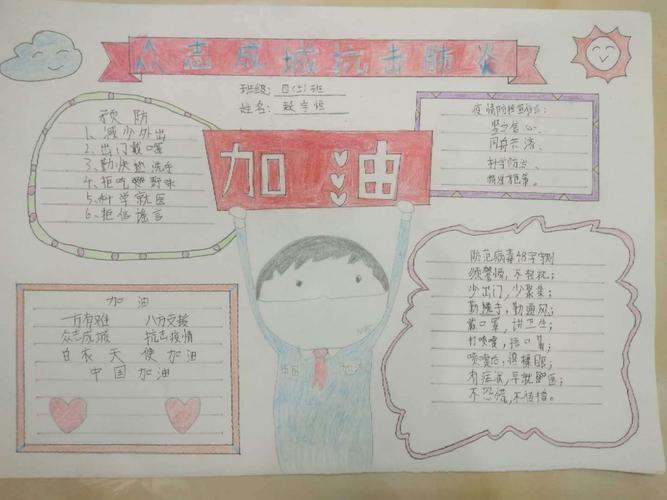 众志成城抗击肺炎
班级: 四(5)班
姓名: 赵宇恒
预 防
1、减少外出
2、出门戴口罩
3、勤快地洗手
4、拒吃野味
5、科学就医
6、拒信谣言
疫情防控宣传:
坚定信心、
同舟共济、
科学防治、
精准施策。
加油
加 油
一方有难 八方支援
众志成城 抗击疫情
白衣天使加油
中国加油
中国 加油
防范病毒48字诀
须警惕,不轻视;
少出门,少聚集;
勤洗手,勤通风;
戴口罩,讲卫生;
打喷嚏,捂口鼻;
喷嚏后,慎揉眼;
有症状,早就医;
不恐慌,不信谣。